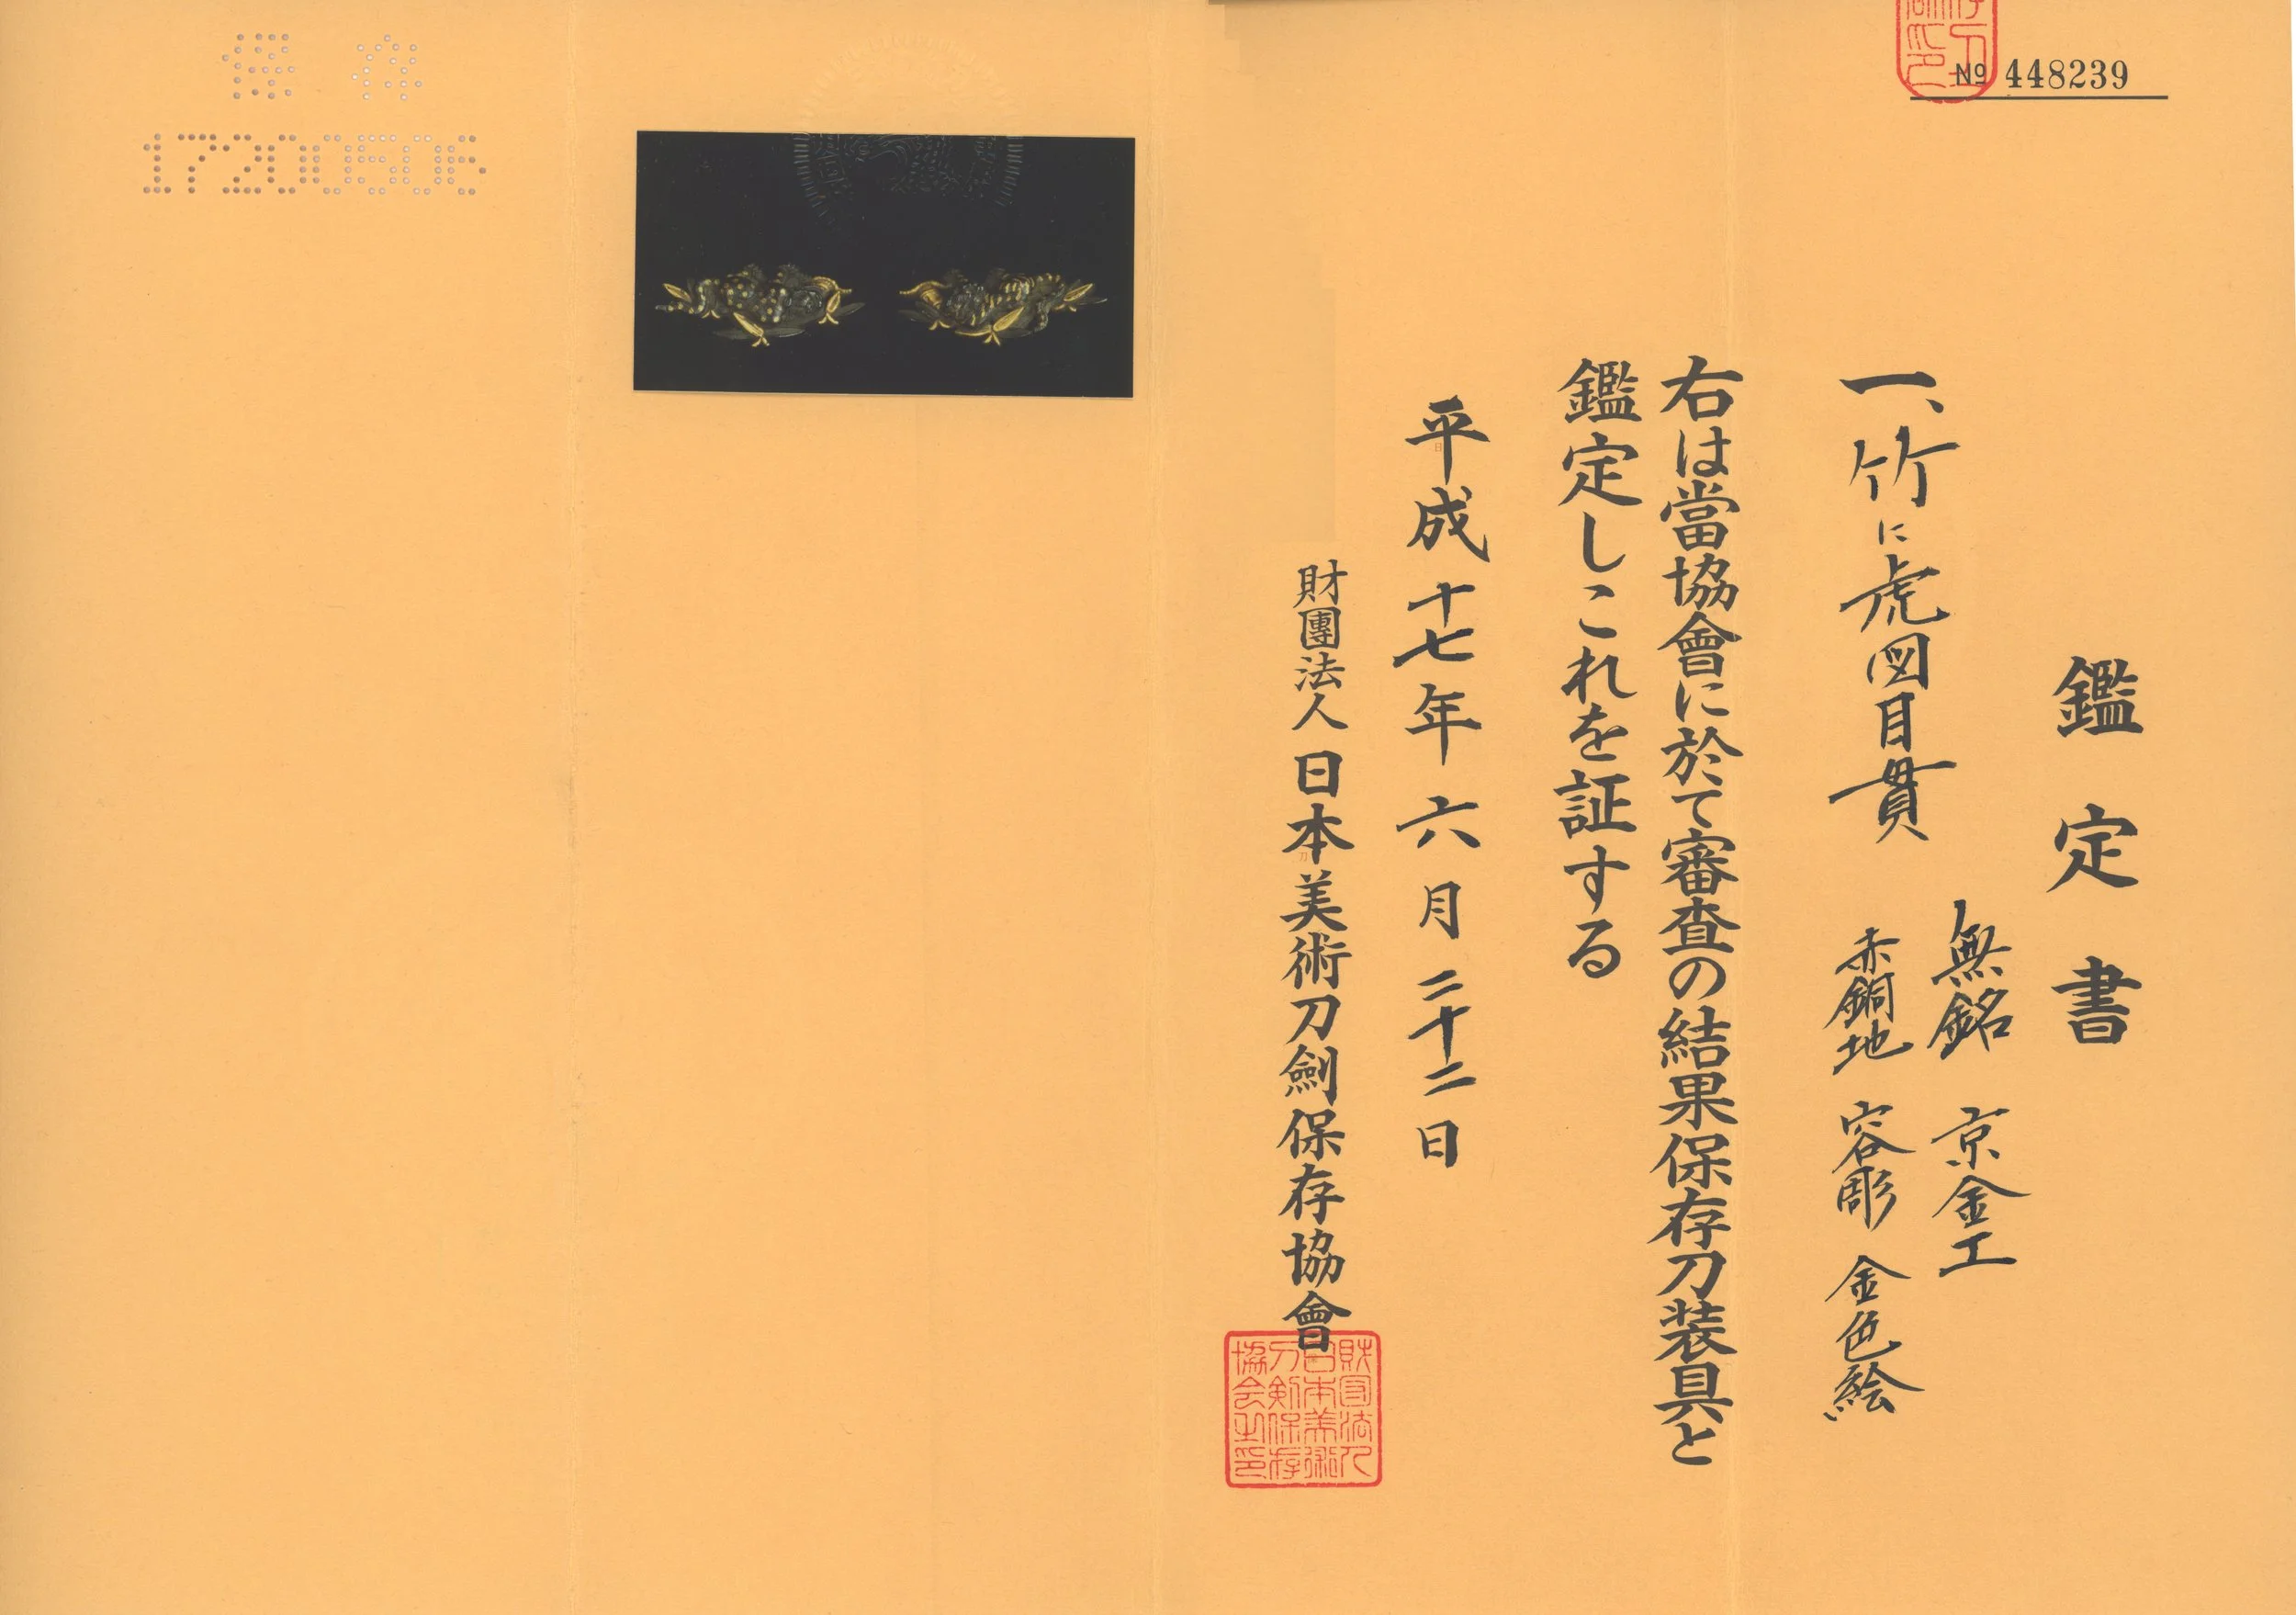 No 448239
鑑定書
一、竹に虎図目貫
無銘 京金工
赤銅地 容彫 金色絵
右は當協會に於て審査の結果保存刀装具と
鑑定しこれを証する
平成十七年六月二十二日
財團法人日本美術刀劍保存協會
財団法人
日本美術
刀剣保存
協会之印
保存